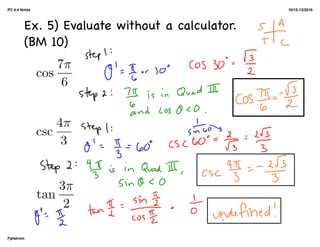 PC 4.4 Notes
10/12-13/2010
Ex. 5) Evaluate without a calculator.
(BM 10)
S | A
T | C
Step 1:
cos 7π/6
θ' = π/6 or 30°
cos 30° = √3/2
Step 2: 7π/6 is in Quad III
and cos θ < 0.
cos 7π/6 = -√3/2
csc 4π/3
Step 1:
θ' = π/3 = 60°
1/sin 60°
csc 60° = 2/√3 = 2√3/3
Step 2: 4π/3 is in Quad III,
sin θ < 0
csc 4π/3 = -2√3/3
tan 3π/2
θ' = π/2
tan π/2 = sin π/2 / cos π/2 = 1/0
undefined!
Fjelstrom